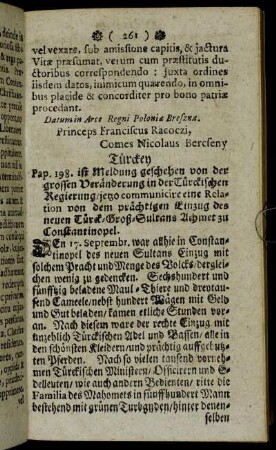 ( 261 )
vel vexare, sub amissione capitis, & jactura
Vitæ præsumat, verum cum præstitutis du-
ctoribus correspondendo : juxta ordines
iisdem datos, inimicum quærendo, in omni-
bus placide & concorditer pro bono patriæ
procedant.
Datum in Arce Regni Poloniæ Breszna.
Princeps Franciscus Racoczi,
Comes Nicolaus Bercseny
Türckey
Pap. 198. ist Meldung geschehen von der
grossen Veränderung in der Türckischen
Regierung/jetzo communicire eine Rela-
tion von dem prächtigen Einzug des
neuen Türck-Groß-Sultans Achmet zu
Constantinopel.
DEn 17. Septembr. war allhie in Constan-
tinopel des neuen Sultans Einzug mit
solchem Pracht und Menge des Volcks/derglei-
chen wenig zu gedencken. Sechshundert und
fünffzig beladne Maul-Thiere und dreytau-
send Cameele/nebst hundert Wägen mit Geld
und Gut beladen/ kamen etliche Stunden vor-
an. Nach diesem ware der rechte Einzug mit
unzehlich Türckischen Adel und Bassen/ alle in
den schönsten Kleidern/und prächtig auffgebutz-
ten Pferden. Nach so vielen tausend vorneh-
men Türckischen Ministern/ Officirern und E-
delleuten/ wie auch andern Bedienten/ ritte die
Familia des Mahomets in fünffhundert Mann
bestehend mit grünen Turbunden/hinter denen-
selben